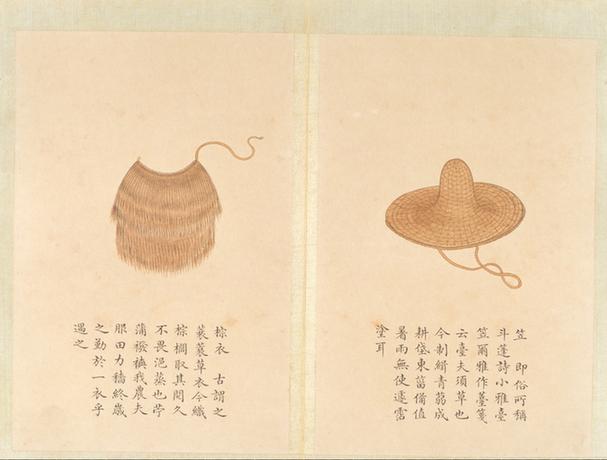 笠　即俗所稱
斗蓬詩小雅臺
笠爾雅作薹箋
云臺夫須草也
今制緝青蒻成
耕岱東菑備值
暑雨無使遽霑
塗耳
棕衣　古謂之
蓑蓑草衣今織
棕櫚取其閱久
不畏浥蒸也苧
蒲襏襫我農夫
服田力穡終歲
之勤於一衣乎
遇之